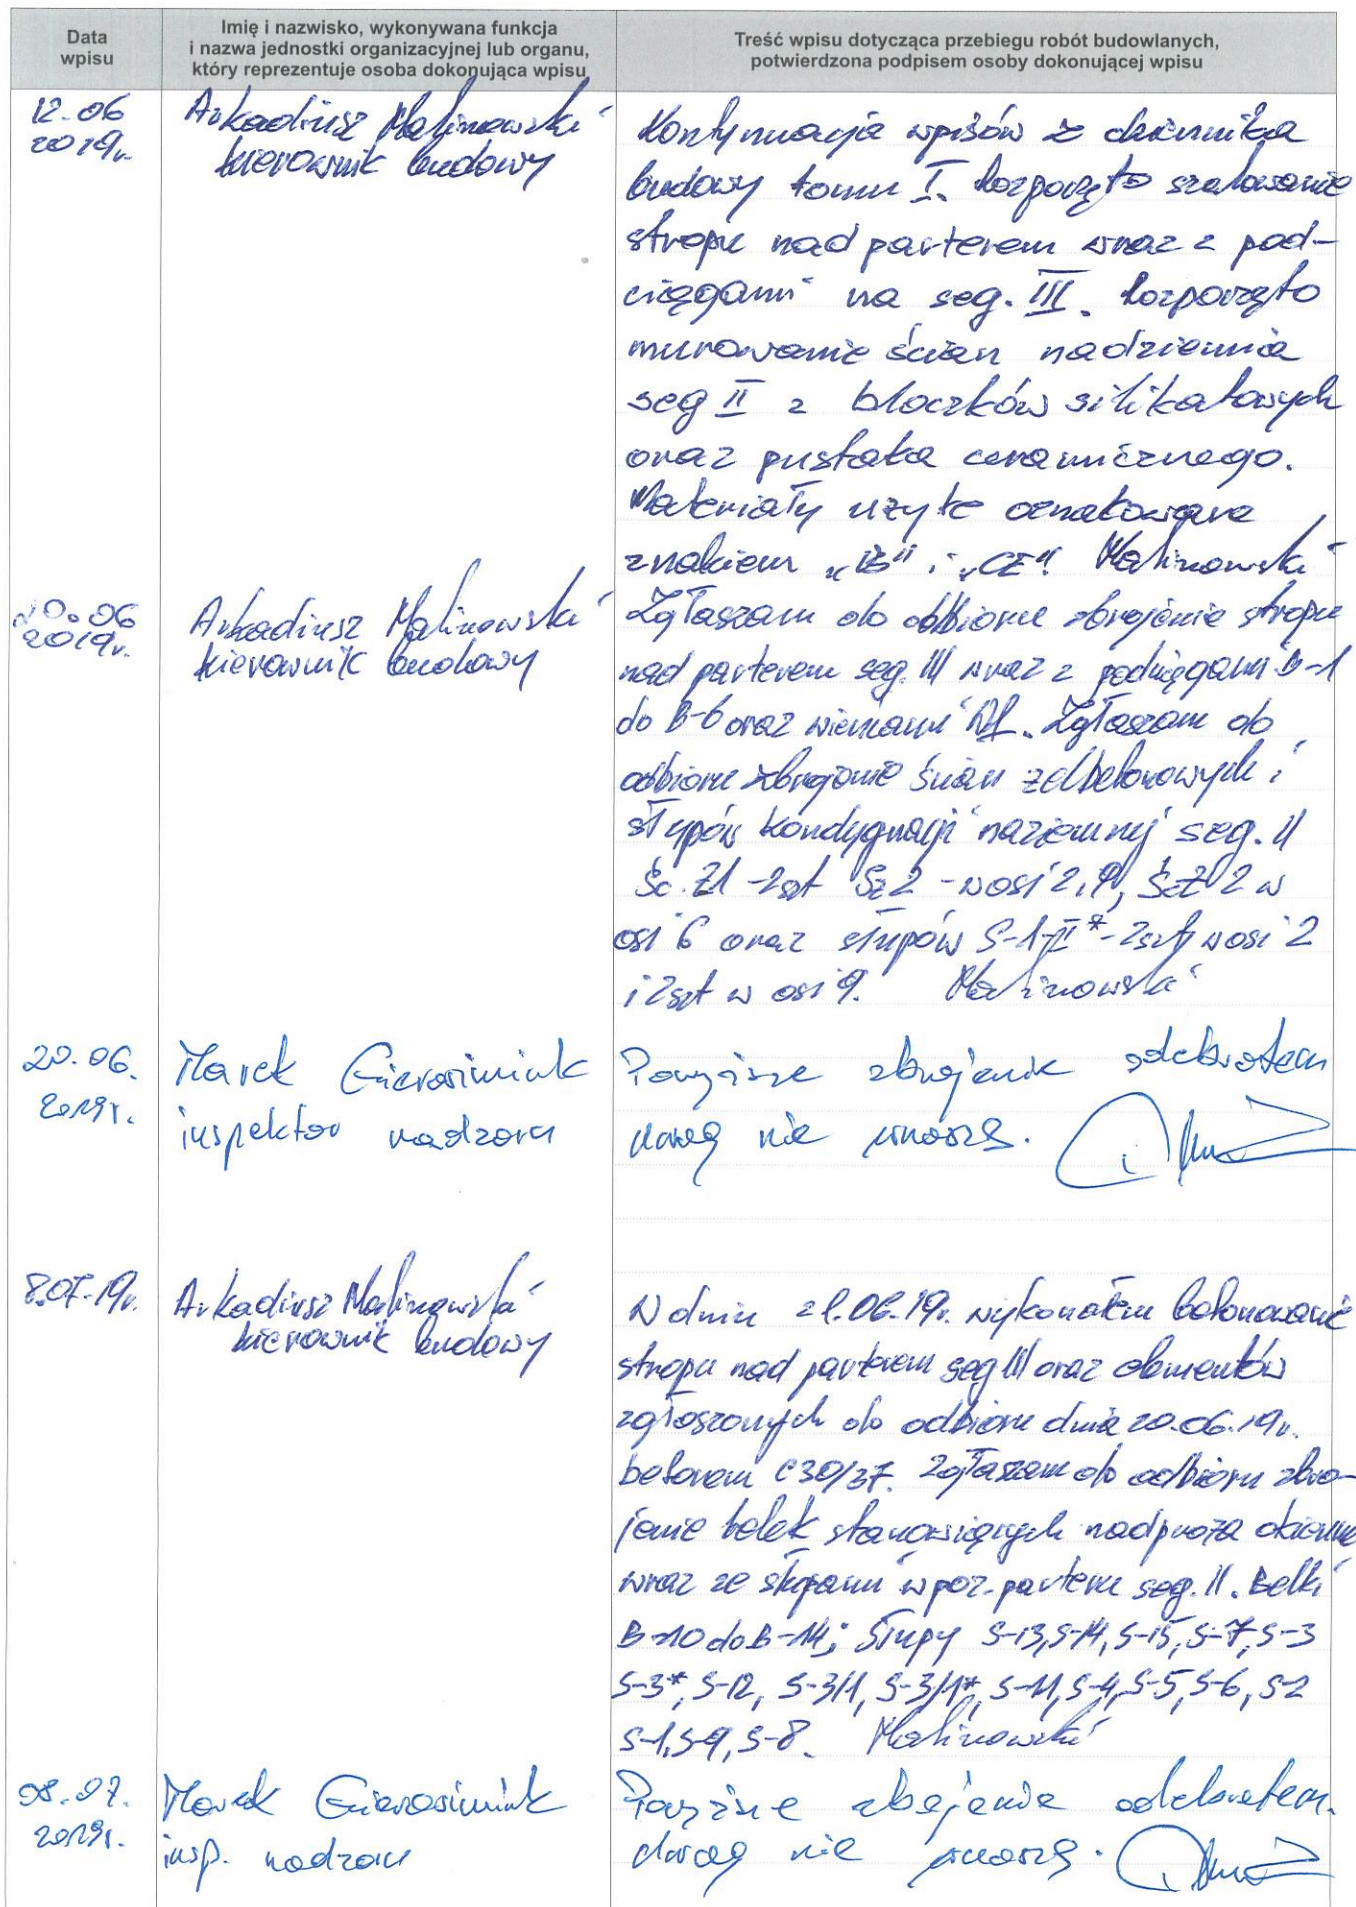 Data
wpisu
Imię i nazwisko, wykonywana funkcja
i nazwa jednostki organizacyjnej lub organu,
który reprezentuje osoba dokonująca wpisu
Treść wpisu dotycząca przebiegu robót budowlanych,
potwierdzona podpisem osoby dokonującej wpisu
12.06
2019r.
Arkadiusz Malinowski
kierownik budowy
Kontynuacja wpisów z dziennika
budowy tomu I. Rozpoczęto szalowanie
stropu nad parterem wraz z pod-
ciągami na seg. III. Rozpoczęto
murowanie ścian nadziemia
seg II z bloczków silikatowych
oraz pustaka ceramicznego.
Materiały użyte oznakowane
znakiem „B" i „CE". Malinowski
20.06
2019r.
Arkadiusz Malinowski
kierownik budowy
Zgłaszam do odbioru zbrojenie stropu
nad parterem seg. III wraz z podciągami B-1
do B-6 oraz wieńcami. Zgłaszam do
odbioru zbrojenie ścian żelbetonowych i
słupów kondygnacji naziemnej seg. II
Śc. Ż1 -2szt - w osi 2,9, ŚcŻ 2 w
osi 6 oraz słupów S-1-II* - 2szt w osi 2
i 2szt w osi 9. Malinowski
20.06.
2019r.
Marek Gierasimiuk
inspektor nadzoru
Powyższe zbrojenie odebrałem
uwag nie wnoszę.
8.07.19r.
Arkadiusz Malinowski
kierownik budowy
W dniu 21.06.19r. wykonałem betonowanie
stropu nad parterem seg III oraz elementów
zgłoszonych do odbioru dnia 20.06.19r.
betonem C30/37. Zgłaszam do odbioru zbro-
jenie belek stanowiących nadproża okienne
wraz ze słupami w poz. parteru seg. II. Belki
B-10 do B-14; Słupy S-13, S-14, S-15, S-7, S-3
S-3*, S-12, S-3/1, S-3/1*, S-11, S-4, S-5, S-6, S-2
S-1, S-9, S-8. Malinowski
08.07.
2019r.
Marek Gierasimiuk
insp. nadzoru
Powyższe zbrojenie odebrałem.
Uwag nie wnoszę.